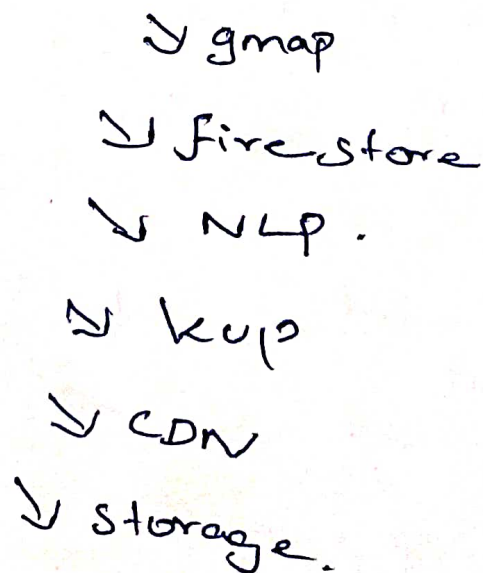 ↘ gmap
↘ firestore
↘ NLP.
↘ kup
↘ CDN
↘ storage.